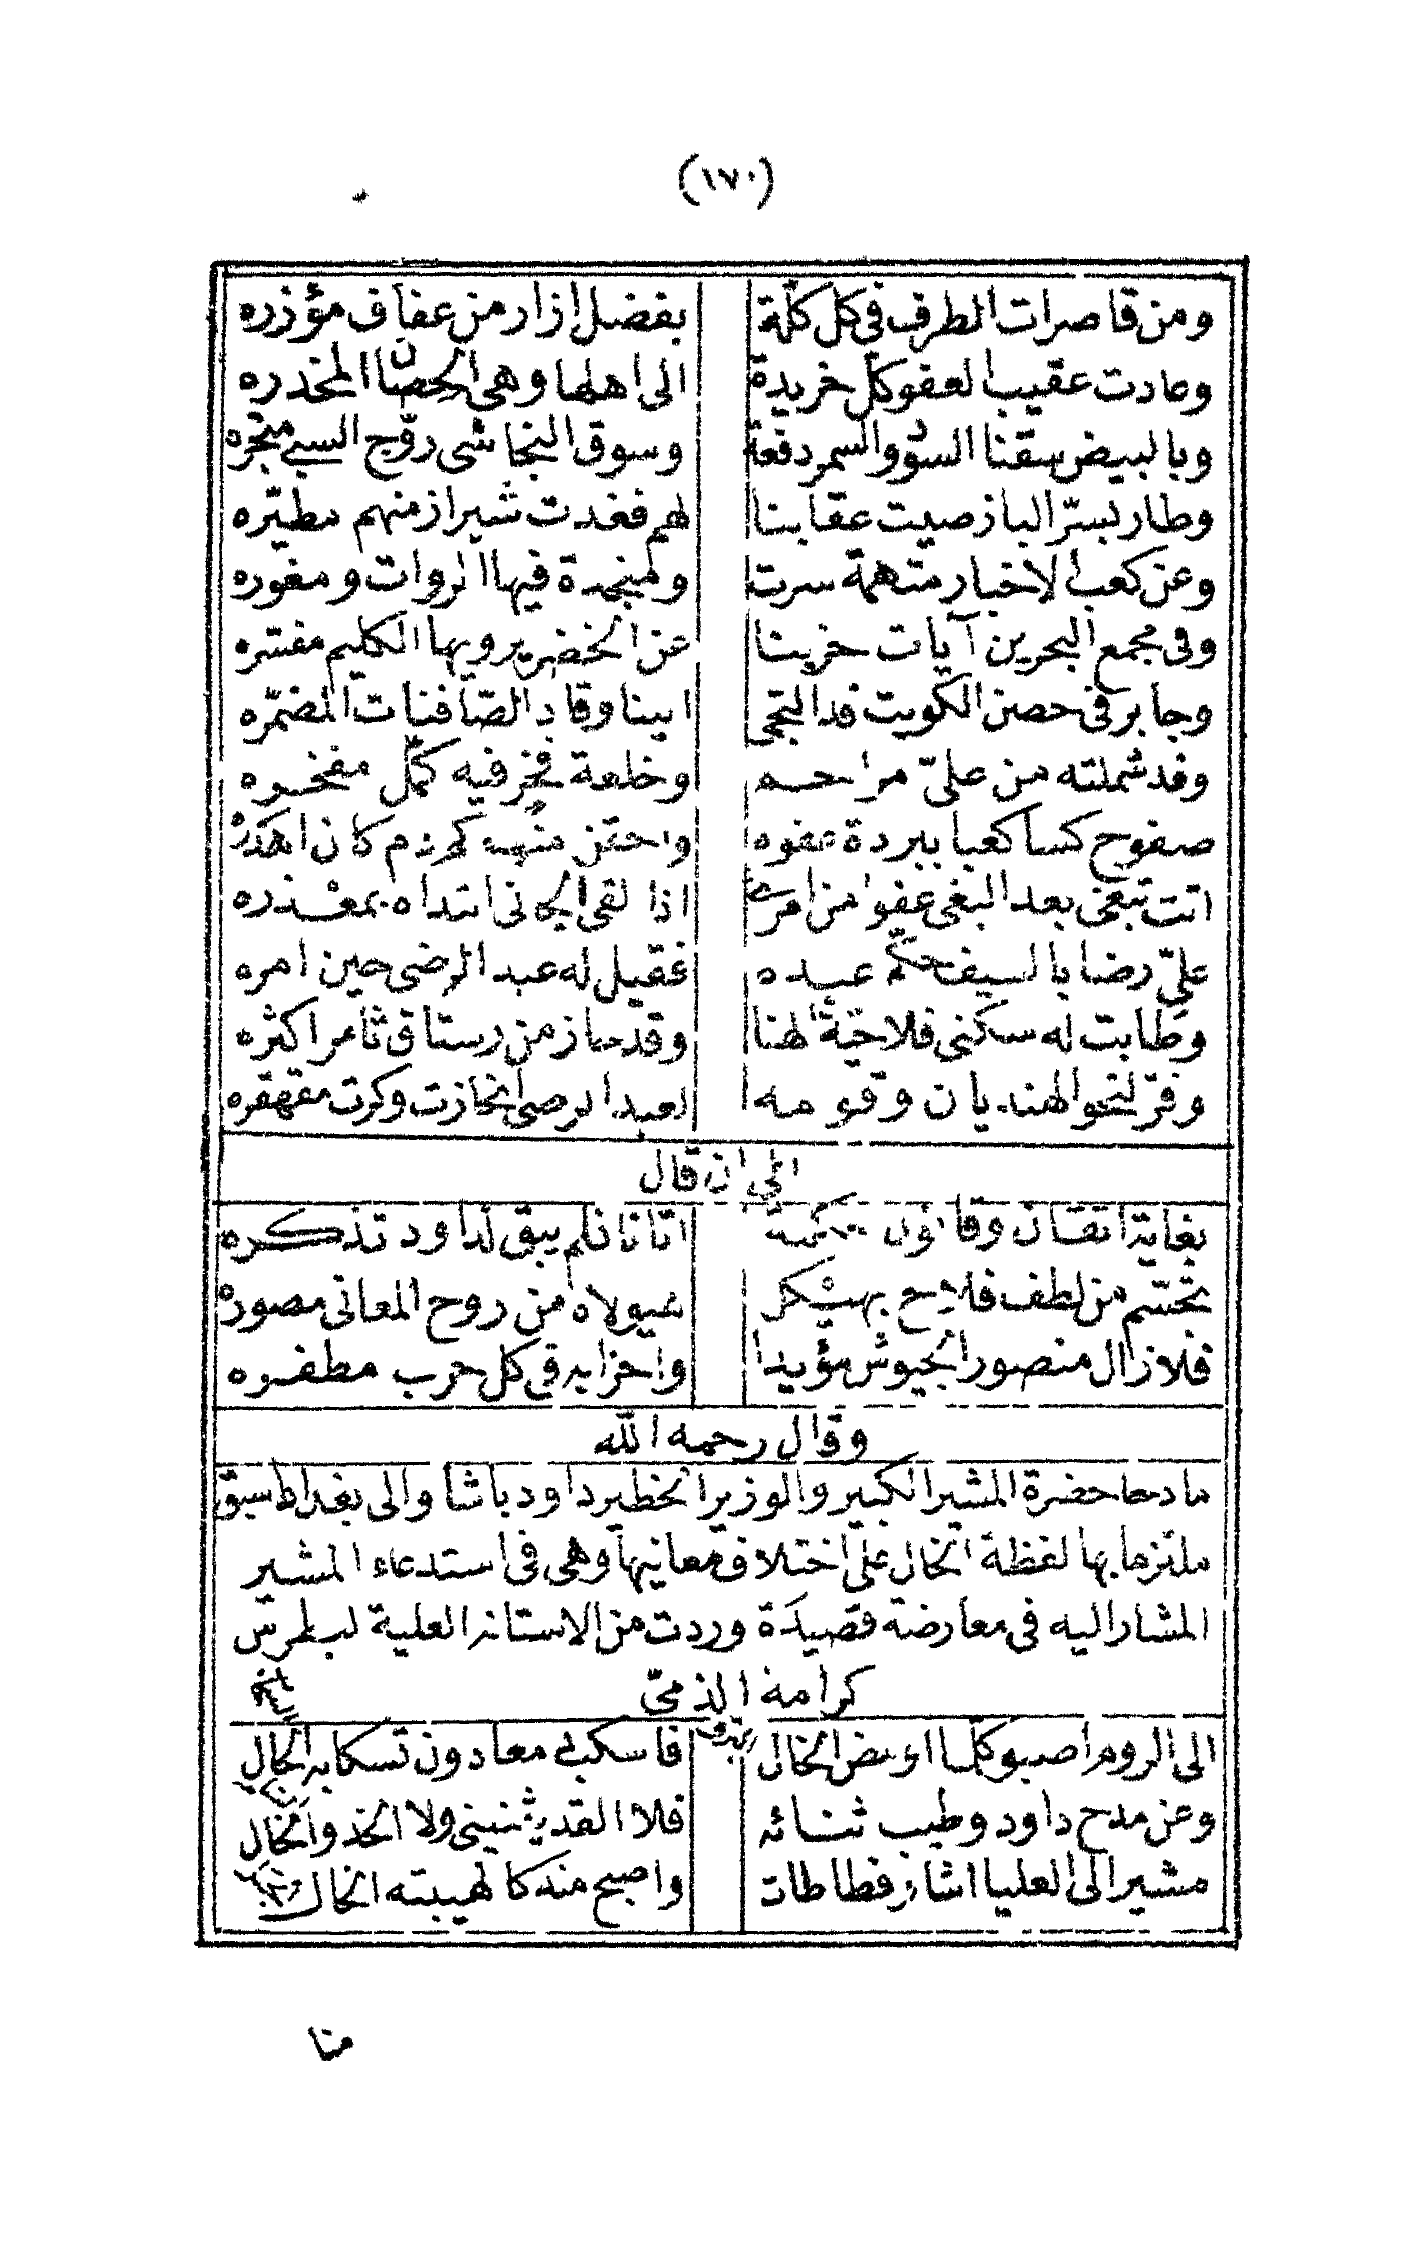 (١٧٠)
ومن قاصرات الطرف في كل كلّة بفضل ازار من عفاف مؤزره
وعادت عقيب العفو كل خريدة الى اهلها وهى الحصان المخدره
وبالبيض سقنا السود والسمر دفعة وسوق النجاشى روّج السبى متجره
وطار بسرّ الباز صيت عقابنا لهم فغدت شيراز منهم مطيّره
وعن كعب الاخبار متهمة سرت ومنجدة فيها الروات ومغوره
وفى مجمع البحرين آيات حزبنا عن الخضر يرويها الكليم مفسّره
وجابر فى حصن الكويت قد التجى الينا وقاد الصّافنات المضمّره
وقد شملته من علىّ مراحم وخلعة فخر فيه كمّل مفخره
صفوح كسا كعبا ببردة عفوه واحقن منه كم دم كان اهدره
اتت تبغى بعد البغى عفوا من امرئ اذا لقى الجانى ابتداه بمعذره
علىّ رضا بالسيف حكّم عبده فقيل له عبد الرضى حين امره
وطابت له سكنى فلاحيّة لهنا وقد حاز من رستاق ثامر اكثره
وفرّ لنحو الهنديان وقومه لعبد الرضى انحازت وكرت مقهقره
الى ان قال
بغاية اتقان وقانون حكمة اتانا فلم يبق لداود تذكره
تجسّم من لطف فلاح بهيكل هيولاه من روح المعانى مصوره
فلا زال منصور الجيوش مؤيدا واحزابه فى كل حرب مظفره
وقال رحمه الله
مادحا حضرة المشير الكبير والوزير الخطير داود باشا والى بغداد سبق
ملتزما بها لفظة الخال على اختلاف معانيها وهى فى استدعاء المشير
المشار اليه فى معارضة قصيدة وردت من الاستانه العلية لبطرس
كرامة الذمىّ
الى الروم اصبو كلما اومض الخال فاسكب دمعا دون تسكابه الخال
وعن مدح داود وطيب ثنائه فلا القد يثنينى ولا الخد والخال
مشير الى العليا اشار فطاطات واصبح مندكا لهيبته الخال
منا